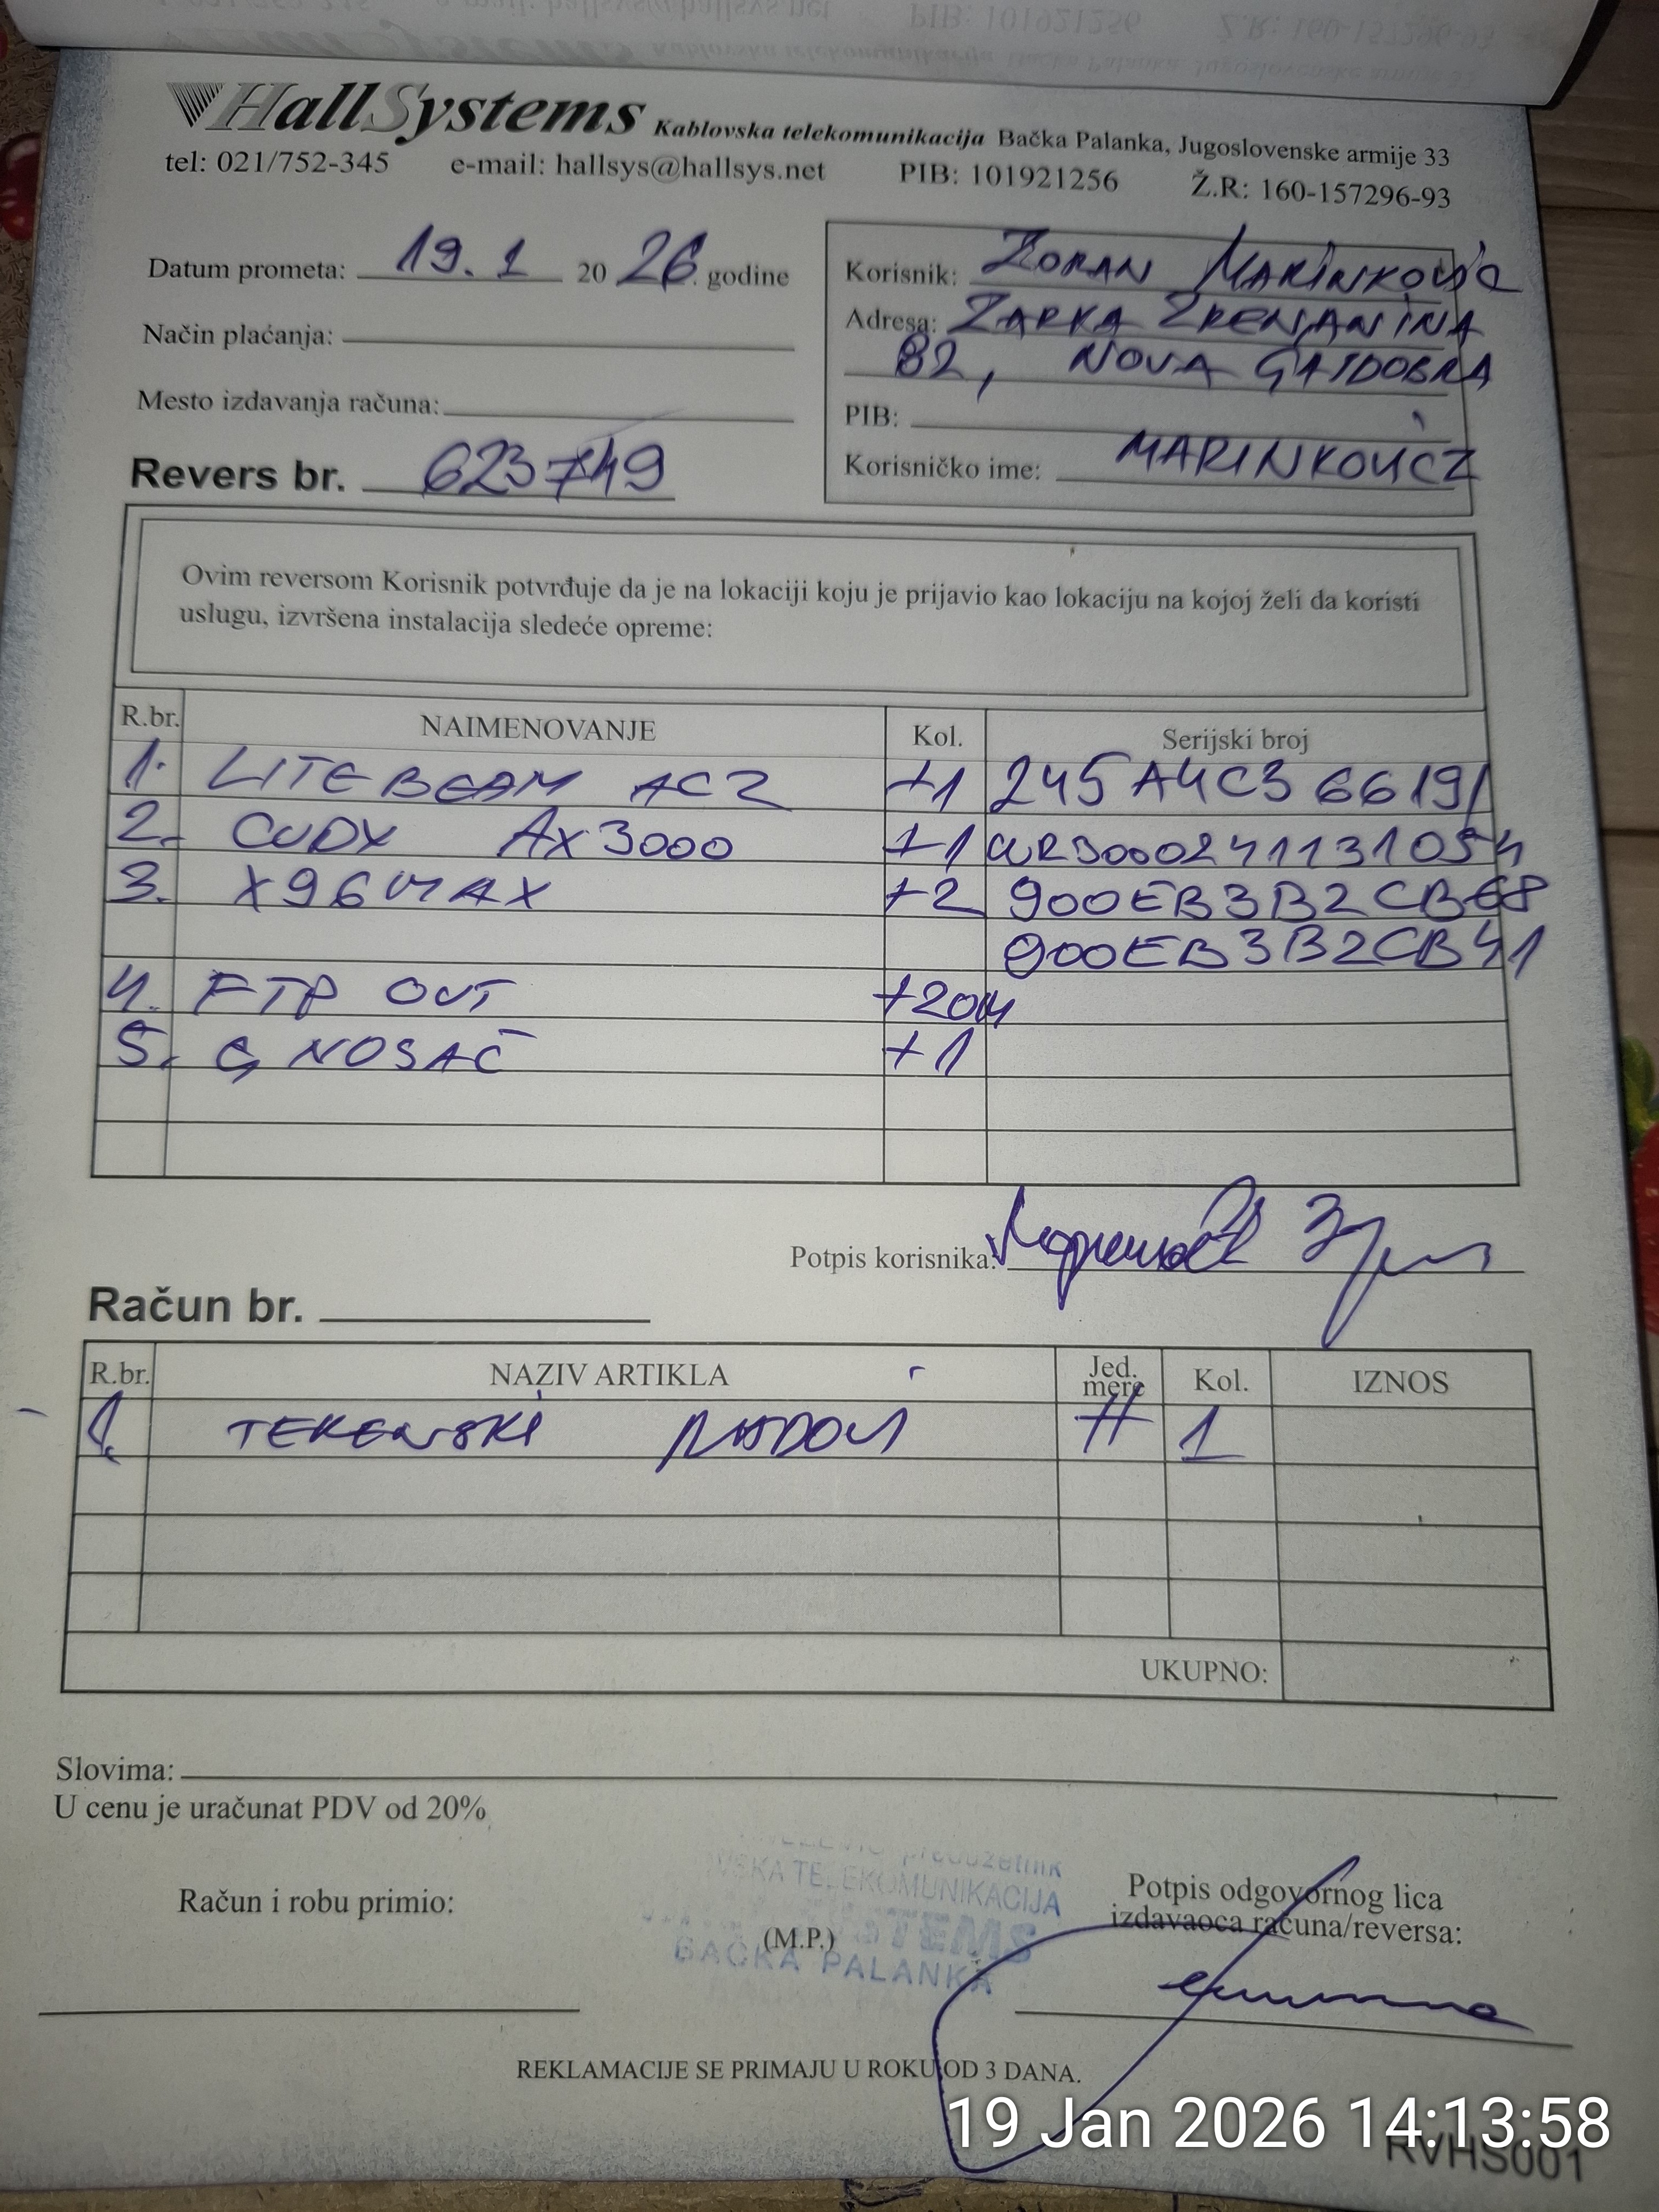 HallSystems Kablovska telekomunikacija Bačka Palanka, Jugoslovenske armije 33
tel: 021/752-345 e-mail: hallsys@hallsys.net PIB: 101921256 Ž.R: 160-157296-93
Datum prometa: 19.1 2026. godine
Način plaćanja:
Mesto izdavanja računa:
Revers br. 623749
Korisnik: ZORAN MARINKOVIC
Adresa: ZARKA ZRENJANINA
82, NOVA GAJDOBRA
PIB:
Korisničko ime: MARINKOVICZ
Ovim reversom Korisnik potvrđuje da je na lokaciji koju je prijavio kao lokaciju na kojoj želi da koristi
uslugu, izvršena instalacija sledeće opreme:
R.br. NAIMENOVANJE Kol. Serijski broj
1. LITEBEAM AC2 +1 245A4C366191
2. CUDY AX3000 +1 WR3000241131054
3. X96MAX +2 900EB3B2CB68
900EB3B2CB41
4. FTP OUT +20M
5. G NOSAČ +1
Potpis korisnika:
Račun br.
R.br. NAZIV ARTIKLA Jed. mere Kol. IZNOS
1. TERENSKI RADOVI H 1
UKUPNO:
Slovima:
U cenu je uračunat PDV od 20%
Račun i robu primio:
(M.P.)
preduzetnik
TELEKOMUNIKACIJA
BAČKA PALANKA
Potpis odgovornog lica
izdavaoca računa/reversa:
REKLAMACIJE SE PRIMAJU U ROKU OD 3 DANA.
19 Jan 2026 14:13:58
RVHS001